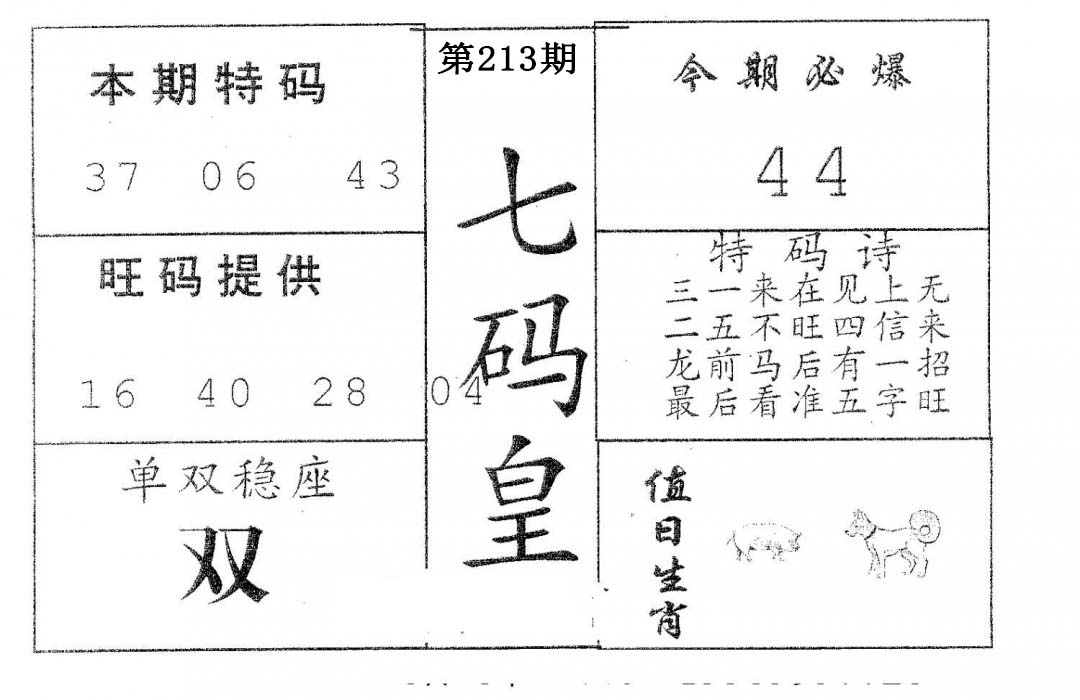 本期特码
37 06 43
旺码提供
16 40 28 04
单双稳座
双
第213期
七码皇
今期必爆
44
特码诗
三一来在见上无
二五不旺四信来
龙前马后有一招
最后看准五字旺
值日生肖